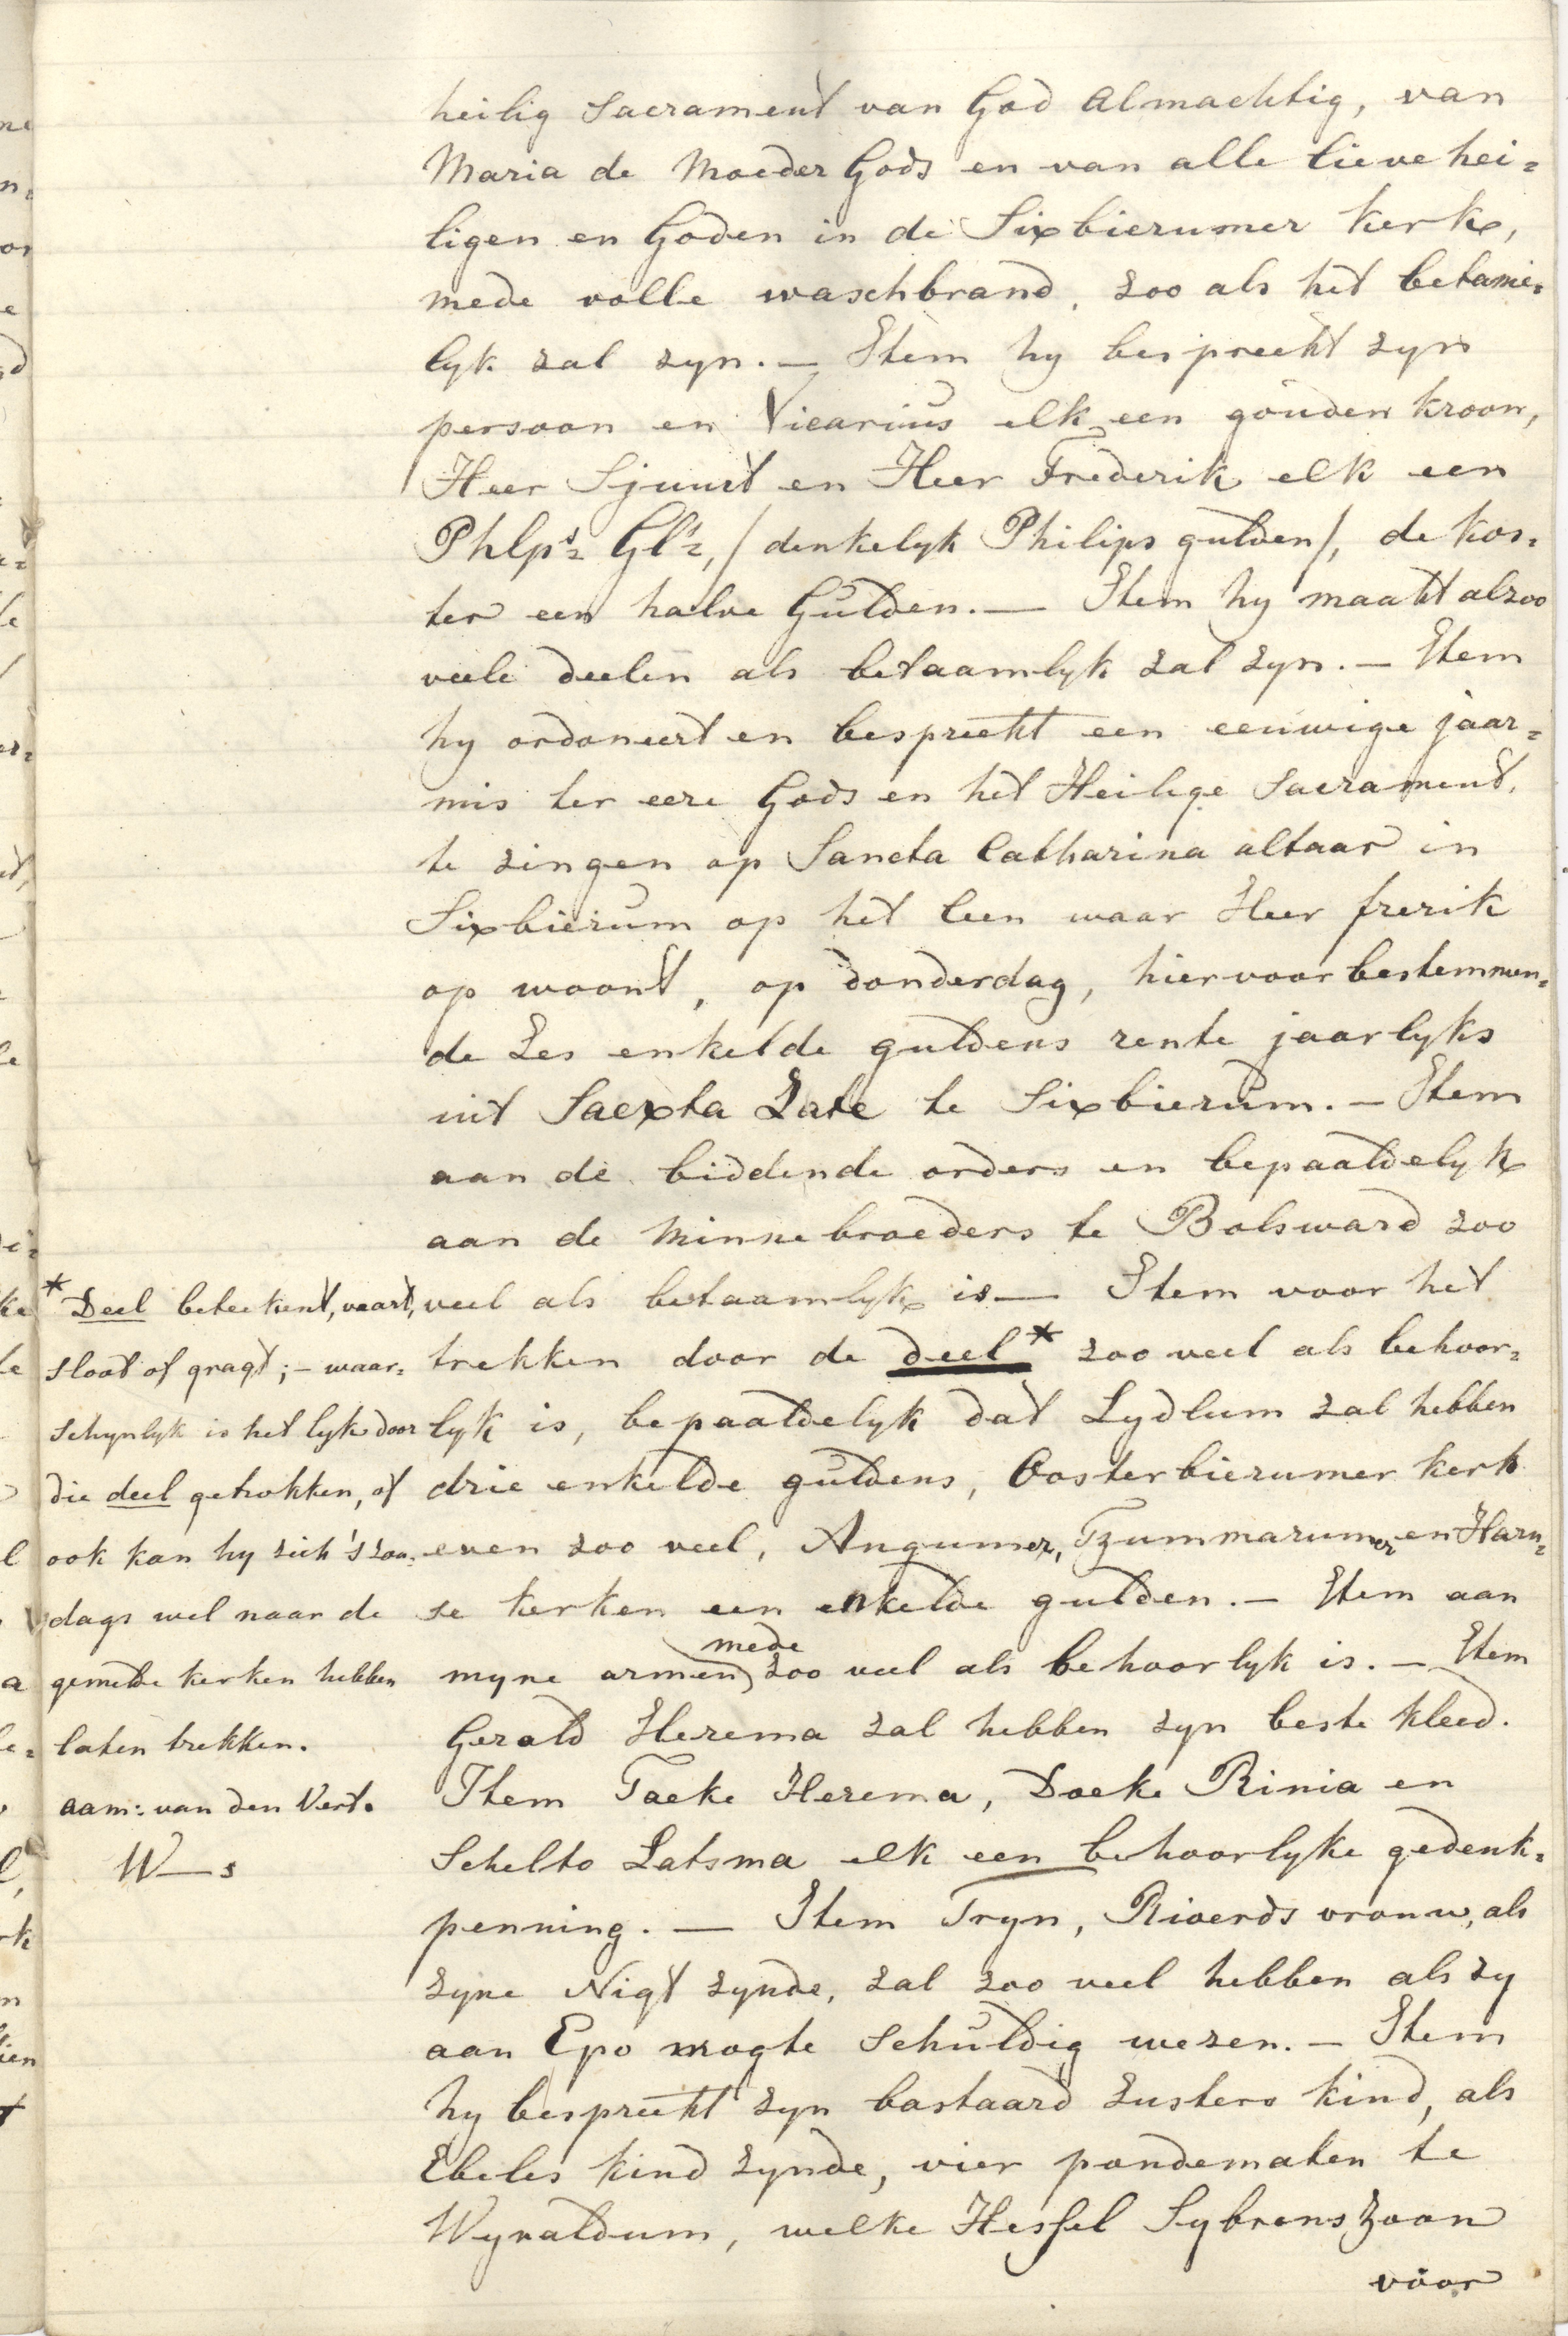 heilig Sacrament van God Almachtig, van
Maria de Moeder Gods en van alle lieve hei=
ligen en Goden in de Sixbierumer kerk,
mede volle waschbrand, zoo als het betame=
lyk zal zyn. — Item hy bespreekt zyn
persoon en Vicarius elk een gouden kroon,
Heer Sjuurt en Heer Frederik elk een
Phlps= Gl=, / denkelyk Philips gulden /, de kos=
ter een halve Gulden. — Item hy maakt alzoo
veele deelen als betaamlyk zal zyn. — Item
hy ordoneert en bespreekt een eeuwige jaar=
mis ter eere Gods en het Heilige Sacrament,
te zingen op Sancta Catharina altaar in
Sixbierum op het leen waar Heer frerik
op woont, op donderdag, hiervoor bestemmen=
de Zes enkelde guldens rente jaarlyks
uit Saexta Zate te Sixbierum. — Item
aan de biddende orders en bepaaldelyk
aan de Minnebroeders te Bolsward zoo
veel als betaamlyk is — Item voor het
trekken door de deel* zoo veel als behoor=
lyk is, bepaaldelyk dat Lydlum zal hebben
drie enkelde guldens, Oosterbierumer kerk
even zoo veel, Angumer, Tzummarumer en Harn=
se kerken een enkelde gulden. — Item aan
myne armen mede zoo veel als behoorlyk is. — Item
Gerald Herema zal hebben zyn beste kleed.
Item Taeke Herema, Doeke Rinia en
Schelto Latsma elk een behoorlyke gedenk=
penning. — Item Tryn, Rioerds vrouw, als
zyne Nigt zynde, zal zoo veel hebben als zy
aan Epo mogte schuldig wezen. — Item
hy bespreekt zyn bastaard zusters kind, als
Ebeles kind zynde, vier pondematen te
Wynaldum, welke Hessel Sybrens zoon
voor
* Deel beteekent, vaart,
sloot of gragt; – waar=
schynlyk is het lyk door
die deel getrokken, of
ook kan hy zich 's zon=
dags wel naar de
gemelde kerken hebben
laten trekken.
aam: van den Vert.
W—s